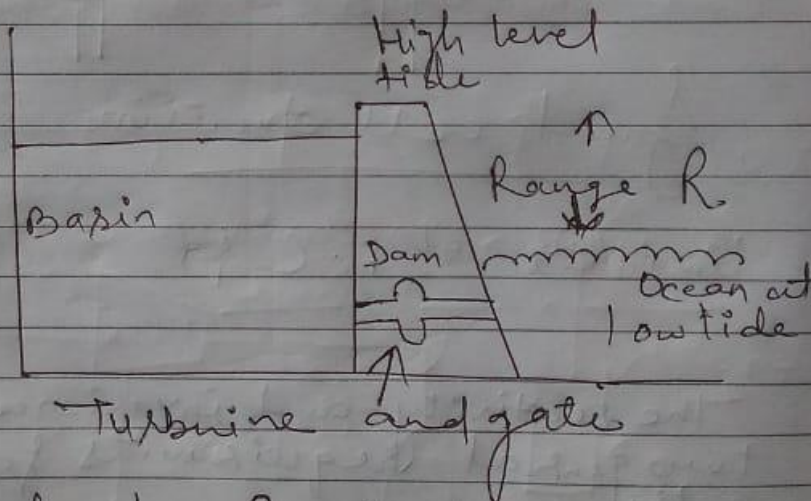 High level
tide
Range R
Basin
Dam
Ocean at
low tide
Turbuine and gate